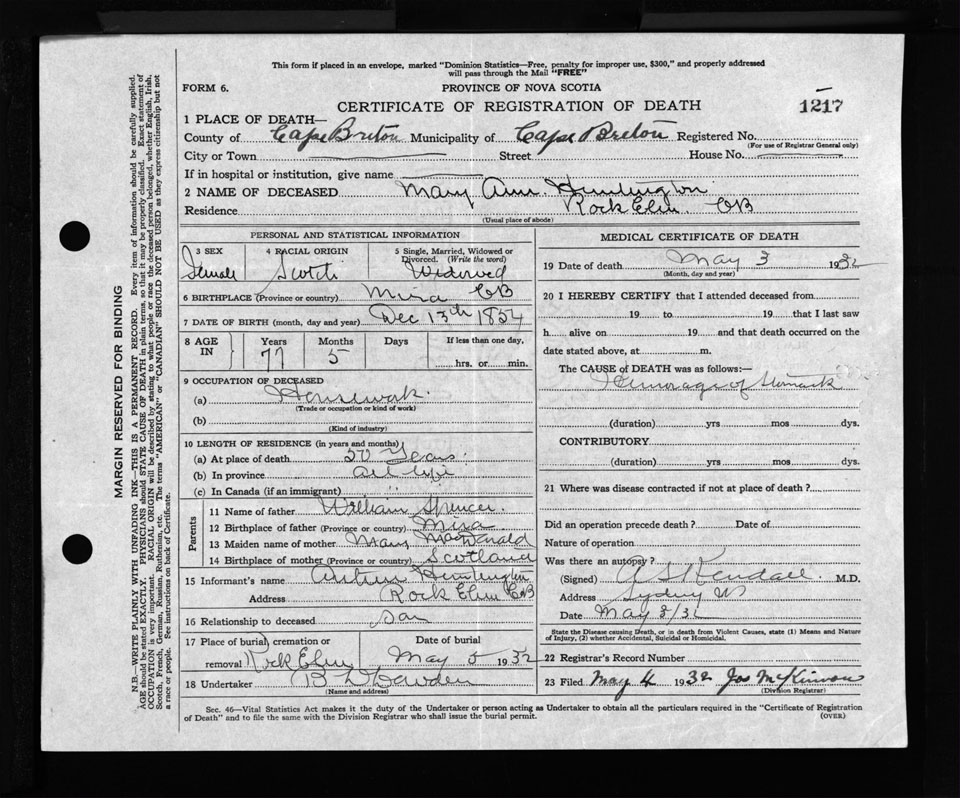 This form if placed in an envelope, marked "Dominion Statistics—Free, penalty for improper use, $300," and properly addressed
will pass through the Mail "FREE"
FORM 6.
PROVINCE OF NOVA SCOTIA
CERTIFICATE OF REGISTRATION OF DEATH
1217
1 PLACE OF DEATH—
County of Cape Breton Municipality of Cape Breton Registered No.
(For use of Registrar General only)
City or Town Street House No.
If in hospital or institution, give name
2 NAME OF DECEASED Mary Ann Huntington
Residence Rock Elm. CB
(Usual place of abode)
PERSONAL AND STATISTICAL INFORMATION
3 SEX 4 RACIAL ORIGIN 5 Single, Married, Widowed or
Divorced. (Write the word)
Female Scotch Widowed
6 BIRTHPLACE (Province or country) Mira CB
7 DATE OF BIRTH (month, day and year) Dec 13th 1854
8 AGE IN Years Months Days If less than one day,
77 5 hrs. or min.
9 OCCUPATION OF DECEASED
(a) Housework.
(Trade or occupation or kind of work)
(b)
(Kind of industry)
10 LENGTH OF RESIDENCE (in years and months)
(a) At place of death 50 Years
(b) In province all life
(c) In Canada (if an immigrant) " "
Parents
11 Name of father William Spencer
12 Birthplace of father (Province or country) Mira
13 Maiden name of mother Mary MacDonald
14 Birthplace of mother (Province or country) Scotland
15 Informant's name Arthur Huntington
Address Rock Elm CB
16 Relationship to deceased Son
17 Place of burial, cremation or Date of burial
removal Rock Elm May 5 1932
18 Undertaker B Dowden
(Name and address)
MEDICAL CERTIFICATE OF DEATH
19 Date of death May 3 1932
(Month, day and year)
20 I HEREBY CERTIFY that I attended deceased from
19 to 19 that I last saw
h alive on 19 and that death occurred on the
date stated above, at m.
The CAUSE of DEATH was as follows:—
Hemorage of Stomack
(duration) yrs mos dys.
CONTRIBUTORY
(duration) yrs mos dys.
21 Where was disease contracted if not at place of death?
Did an operation precede death? Date of
Nature of operation
Was there an autopsy?
(Signed) A S Kendall. M.D.
Address Sydney
Date May 3/32
State the Disease causing Death, or in death from Violent Causes, state (1) Means and Nature
of Injury, (2) whether Accidental, Suicidal or Homicidal.
22 Registrar's Record Number
23 Filed May 4 1932 Jos McKinnon
(Division Registrar)
Sec. 46—Vital Statistics Act makes it the duty of the Undertaker or person acting as Undertaker to obtain all the particulars required in the "Certificate of Registration
of Death" and to file the same with the Division Registrar who shall issue the burial permit.
(OVER)
MARGIN RESERVED FOR BINDING
N.B.—WRITE PLAINLY WITH UNFADING INK—THIS IS A PERMANENT RECORD. Every item of information should be carefully supplied.
AGE should be stated EXACTLY. PHYSICIANS should STATE CAUSE OF DEATH in plain terms, so that it may be properly classified. Exact statement of
OCCUPATION is very important. RACIAL ORIGIN will be described by stating to what people or race the deceased person belonged, whether English, Irish,
Scotch, French, German, Russian, Ruthenian, etc. The terms "AMERICAN" or "CANADIAN" SHOULD NOT BE USED as they express citizenship but not
a race or people. See instructions on back of Certificate.